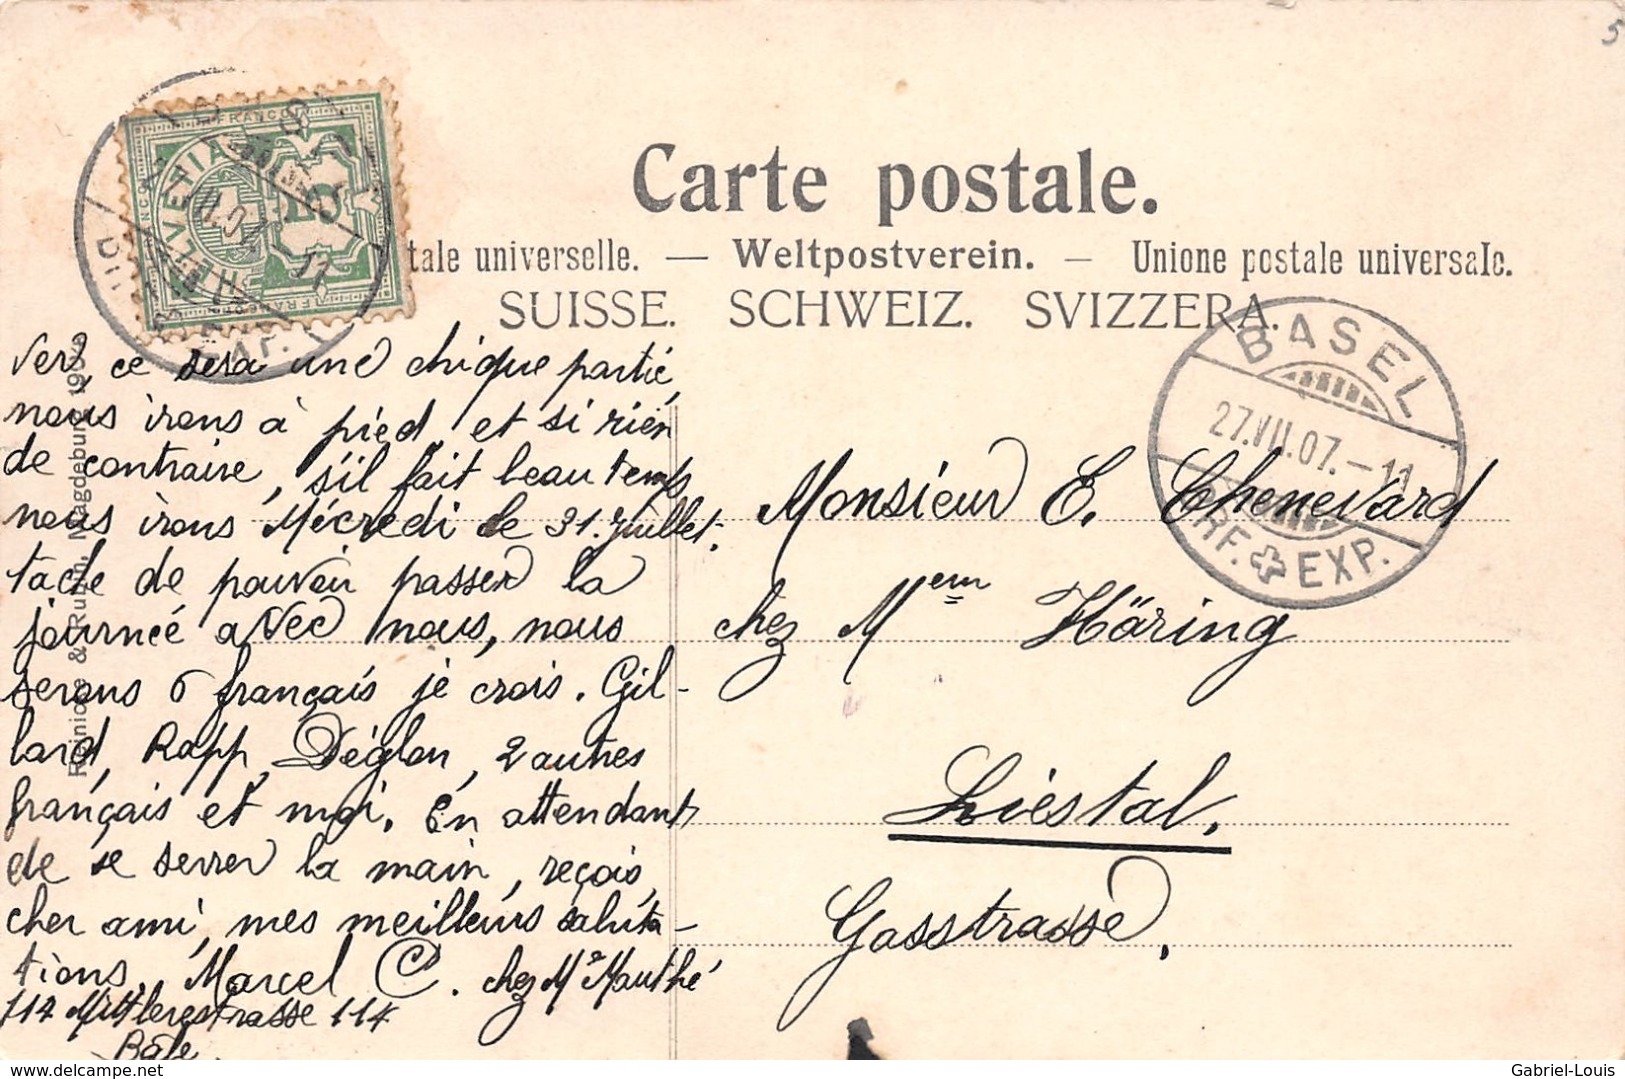 5
FRANCO
HELVETIA
Carte postale.
tale universelle. — Weltpostverein. — Unione postale universale.
SUISSE. SCHWEIZ. SVIZZERA.
BASEL
27.VII.07.-11
BRF. EXP.
Ver, ce sera une chique partie,
nous irons à pied, et si rien
de contraire, s'il fait beau temps
nous irons Mécredi le 31. Juillet.
tache de pouvoir passer la
journée avec nous, nous
serons 6 français je crois. Gil-
lard, Rapp, Déglon, 2 autres
français et moi. En attendant
de se serrer la main, reçois,
cher ami, mes meilleurs saluta-
tions. Marcel C. chez Me Mauthé
114 Mittlerestrasse 114
Bâle.
Monsieur E. Chenevard
chez Mem Häring
Liestal.
Gasstrasse.
Magdeburg
Gabriel-Louis